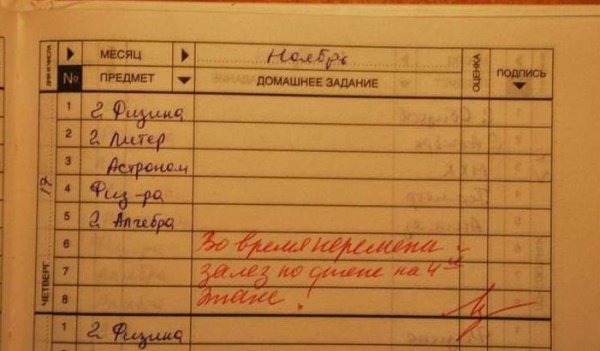 ДНИ И ЧИСЛА МЕСЯЦ Ноябрь ОЦЕНКА ПОДПИСЬ
№ ПРЕДМЕТ ДОМАШНЕЕ ЗАДАНИЕ
1 2 Физика
2 2 Литер
3 Астроном
4 Физ-ра
5 2 Алгебра
6 Во время перемена
7 залез по стене на 4ый
8 этаже!
ЧЕТВЕРГ 17
1 2 Физика